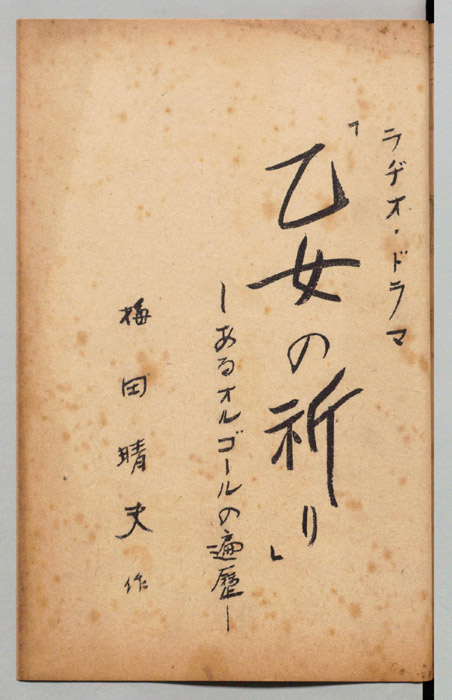 ラヂオ・ドラマ
「乙女の祈り」
―あるオルゴールの遍歴―
梅田晴夫 作